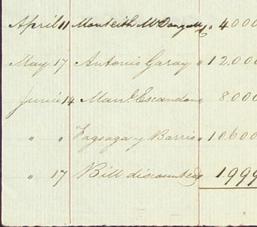 April 11 Monteith McDougall 4000
May 17 Antonio Garay " 12000
Junio 14 Manl. Escandon 8000
" " Fagoaga y Barrio " 10600
" 17 Bill discounted 1999